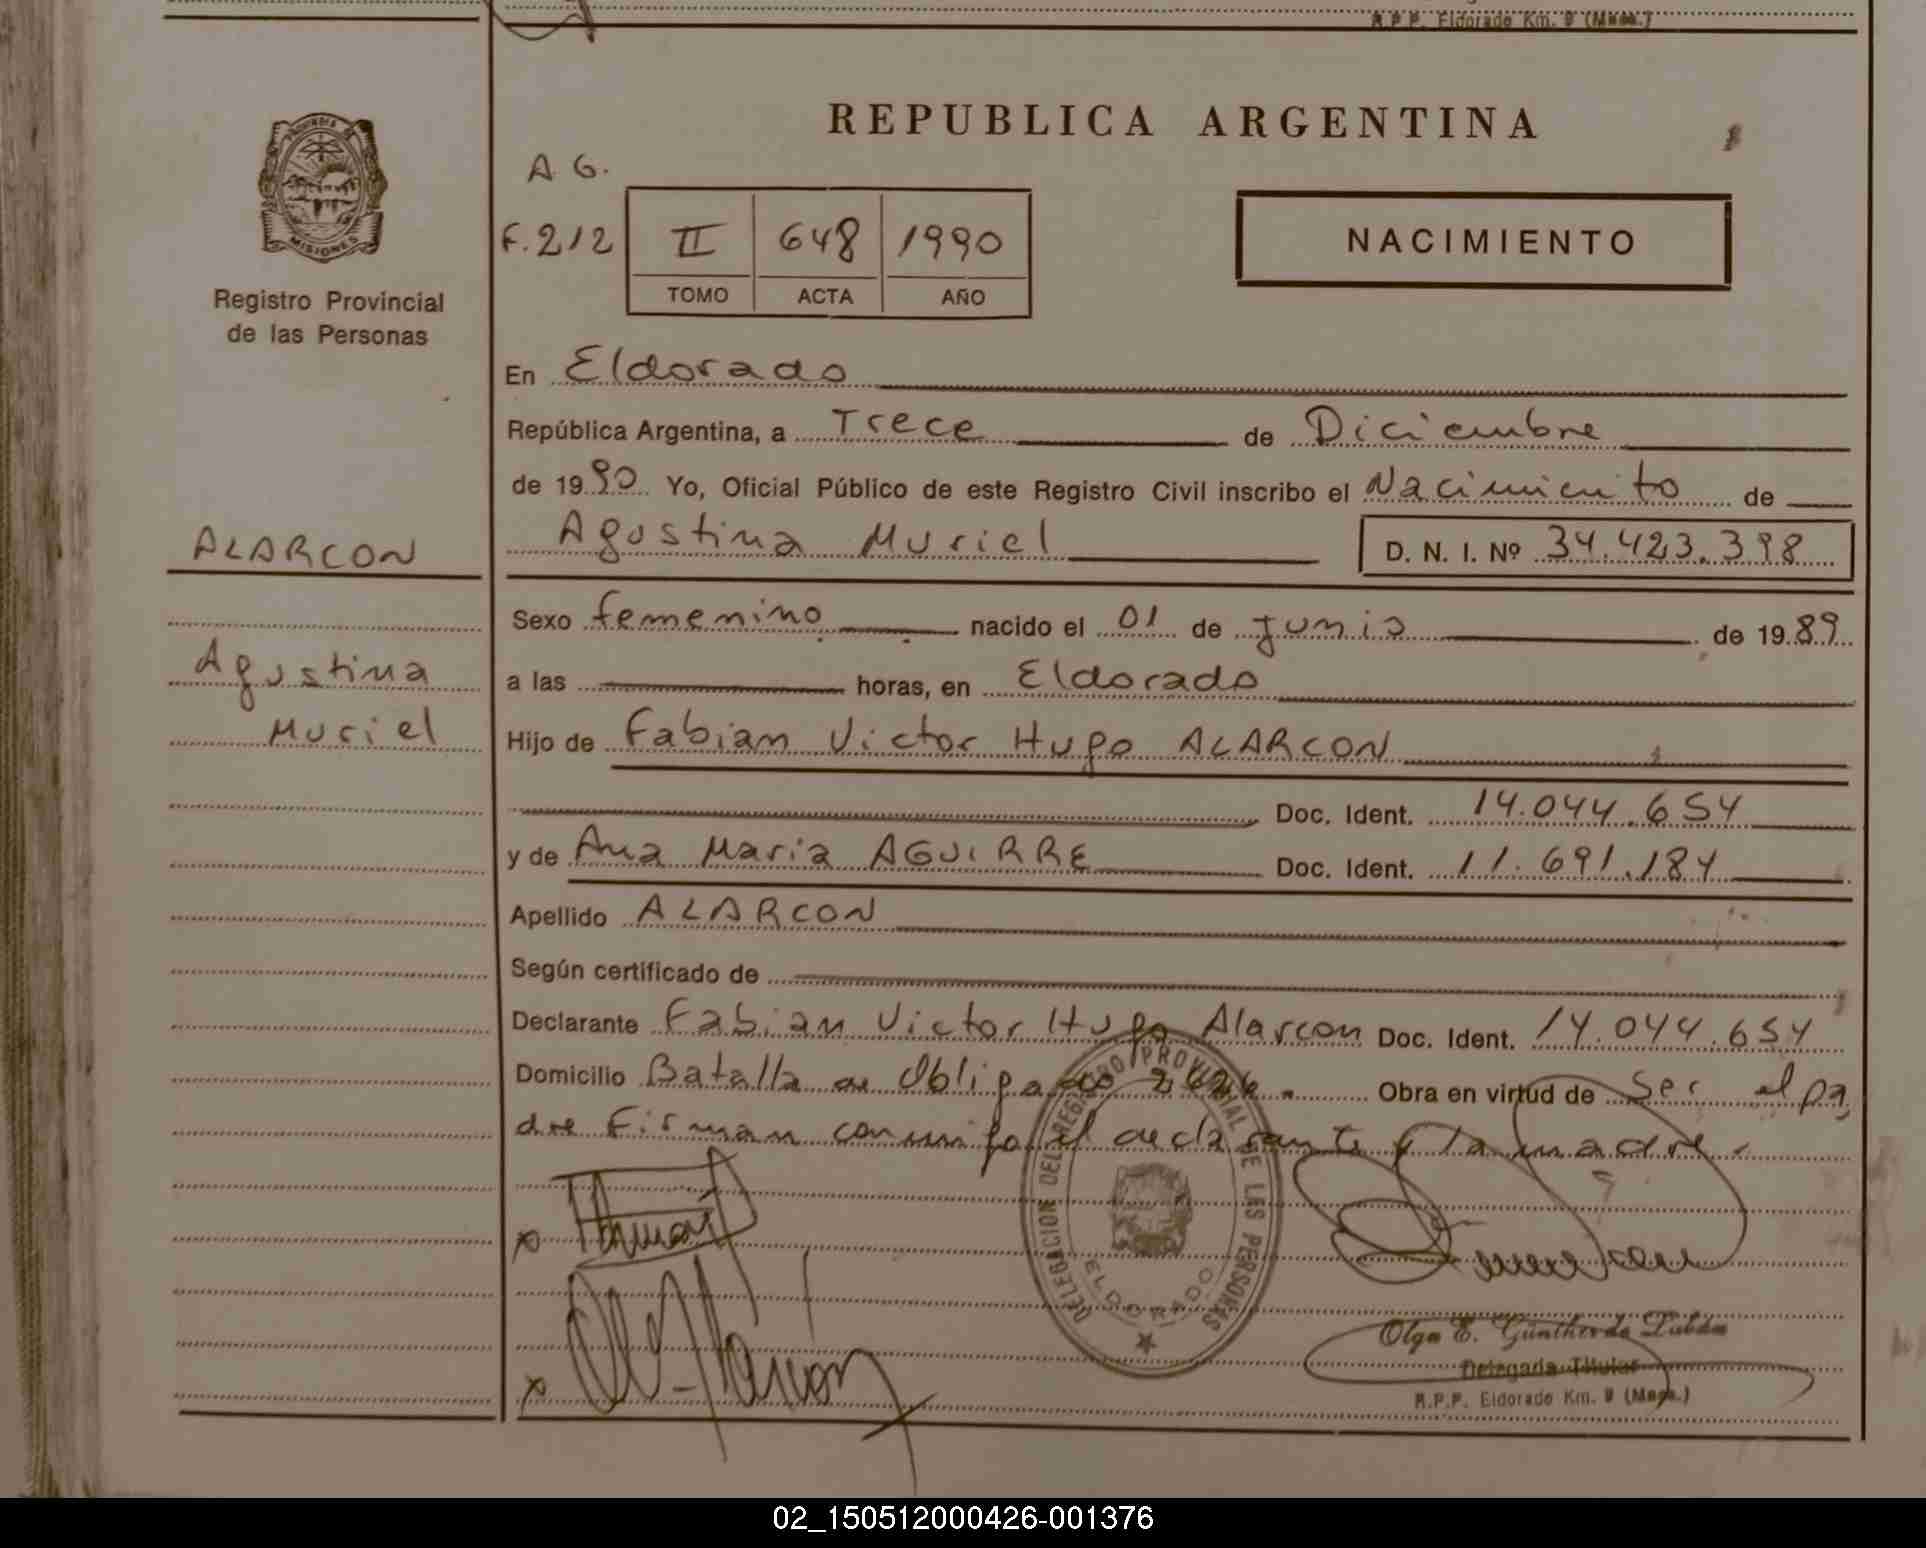 R.P.P. Eldorado Km. 9 (Mnes.)
REPUBLICA ARGENTINA
PROVINCIA DE
MISIONES
Registro Provincial
de las Personas
A. G.
F. 212
II 648 1990
TOMO ACTA AÑO
NACIMIENTO
En Eldorado
República Argentina, a Trece de Diciembre
de 1990 Yo, Oficial Público de este Registro Civil inscribo el Nacimiento de
Agustina Muriel D. N. I. Nº 34.423.398
ALARCON
Agustina
Muriel
Sexo femenino nacido el 01 de Junio de 1989
a las horas, en Eldorado
Hijo de Fabian Victor Hugo ALARCON
Doc. Ident. 14.044.654
y de Ana Maria AGUIRRE Doc. Ident. 11.691.184
Apellido ALARCON
Según certificado de
Declarante Fabian Victor Hugo Alarcon Doc. Ident. 14.044.654
Domicilio Batalla de Obligado Obra en virtud de Ser el pa
dre Firman conmigo el declarante y la madre.
DELEGACION DEL REGISTRO PROVINCIAL DE LAS PERSONAS
ELDORADO
Olga E. Günther de
Delegada Titular
R.P.P. Eldorado Km. 9 (Mnes.)
02_150512000426-001376